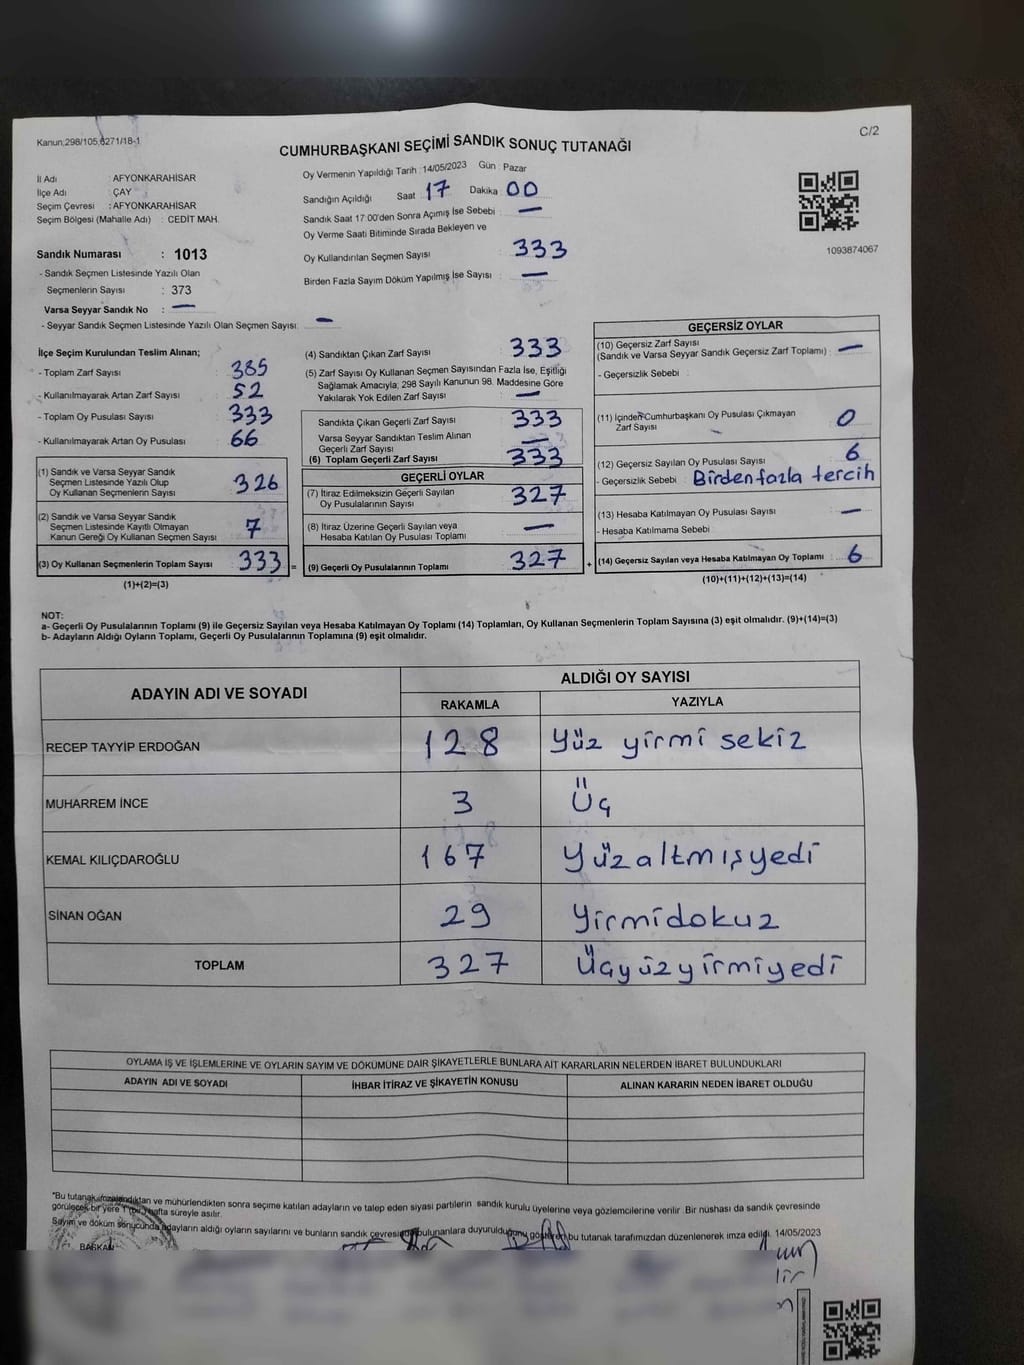 Kanun;298/105,6271/18-1
C/2
CUMHURBAŞKANI SEÇİMİ SANDIK SONUÇ TUTANAĞI
İl Adı : AFYONKARAHİSAR
İlçe Adı : ÇAY
Seçim Çevresi : AFYONKARAHİSAR
Seçim Bölgesi (Mahalle Adı) : CEDİT MAH.
Sandık Numarası : 1013
- Sandık Seçmen Listesinde Yazılı Olan
Seçmenlerin Sayısı : 373
Varsa Seyyar Sandık No : —
- Seyyar Sandık Seçmen Listesinde Yazılı Olan Seçmen Sayısı: —
Oy Vermenin Yapıldığı Tarih : 14/05/2023 Gün : Pazar
Sandığın Açıldığı Saat : 17 Dakika : 00
Sandık Saat 17:00'den Sonra Açımış İse Sebebi : —
Oy Verme Saati Bitiminde Sırada Bekleyen ve
Oy Kullandırılan Seçmen Sayısı : 333
Birden Fazla Sayım Döküm Yapılmış İse Sayısı : —
1093874067
İlçe Seçim Kurulundan Teslim Alınan;
- Toplam Zarf Sayısı : 385
- Kullanılmayarak Artan Zarf Sayısı : 52
- Toplam Oy Pusulası Sayısı : 333
- Kullanılmayarak Artan Oy Pusulası : 66
(1) Sandık ve Varsa Seyyar Sandık
Seçmen Listesinde Yazılı Olup
Oy Kullanan Seçmenlerin Sayısı : 326
(2) Sandık ve Varsa Seyyar Sandık
Seçmen Listesinde Kayıtlı Olmayan
Kanun Gereği Oy Kullanan Seçmen Sayısı : 7
(3) Oy Kullanan Seçmenlerin Toplam Sayısı : 333 =
(1)+(2)=(3)
(4) Sandıktan Çıkan Zarf Sayısı : 333
(5) Zarf Sayısı Oy Kullanan Seçmen Sayısından Fazla İse, Eşitliği
Sağlamak Amacıyla, 298 Sayılı Kanunun 98. Maddesine Göre
Yakılarak Yok Edilen Zarf Sayısı : —
Sandıkta Çıkan Geçerli Zarf Sayısı : 333
Varsa Seyyar Sandıktan Teslim Alınan
Geçerli Zarf Sayısı : —
(6) Toplam Geçerli Zarf Sayısı : 333
GEÇERLİ OYLAR
(7) İtiraz Edilmeksizin Geçerli Sayılan
Oy Pusulalarının Sayısı : 327
(8) İtiraz Üzerine Geçerli Sayılan veya
Hesaba Katılan Oy Pusulası Toplamı : —
(9) Geçerli Oy Pusulalarının Toplamı : 327 +
GEÇERSİZ OYLAR
(10) Geçersiz Zarf Sayısı
(Sandık ve Varsa Seyyar Sandık Geçersiz Zarf Toplamı) : —
- Geçersizlik Sebebi :
(11) İçinden Cumhurbaşkanı Oy Pusulası Çıkmayan
Zarf Sayısı : 0
(12) Geçersiz Sayılan Oy Pusulası Sayısı : 6
- Geçersizlik Sebebi : Birden fazla tercih
(13) Hesaba Katılmayan Oy Pusulası Sayısı : —
- Hesaba Katılmama Sebebi :
(14) Geçersiz Sayılan veya Hesaba Katılmayan Oy Toplamı : 6
(10)+(11)+(12)+(13)=(14)
NOT:
a- Geçerli Oy Pusulalarının Toplamı (9) ile Geçersiz Sayılan veya Hesaba Katılmayan Oy Toplamı (14) Toplamları, Oy Kullanan Seçmenlerin Toplam Sayısına (3) eşit olmalıdır. (9)+(14)=(3)
b- Adayların Aldığı Oyların Toplamı, Geçerli Oy Pusulalarının Toplamına (9) eşit olmalıdır.
ADAYIN ADI VE SOYADI ALDIĞI OY SAYISI
RAKAMLA YAZIYLA
RECEP TAYYİP ERDOĞAN 128 Yüz yirmi sekiz
MUHARREM İNCE 3 Üç
KEMAL KILIÇDAROĞLU 167 Yüzaltmışyedi
SİNAN OĞAN 29 Yirmidokuz
TOPLAM 327 Üçyüzyirmiyedi
OYLAMA İŞ VE İŞLEMLERİNE VE OYLARIN SAYIM VE DÖKÜMÜNE DAİR ŞİKAYETLERLE BUNLARA AİT KARARLARIN NELERDEN İBARET BULUNDUKLARI
ADAYIN ADI VE SOYADI İHBAR İTİRAZ VE ŞİKAYETİN KONUSU ALINAN KARARIN NEDEN İBARET OLDUĞU
"Bu tutanak imzalandıktan ve mühürlendikten sonra seçime katılan adayların ve talep eden siyasi partilerin sandık kurulu üyelerine veya gözlemcilerine verilir. Bir nüshası da sandık çevresinde
görülecek bir yere 1 (bir) hafta süreyle asılır.
Sayım ve döküm sonucunda adayların aldığı oyların sayılarını ve bunların sandık çevresinde bulunanlara duyurulduğunu gösteren bu tutanak tarafımızdan düzenlenerek imza edildi. 14/05/2023
BAŞKAN